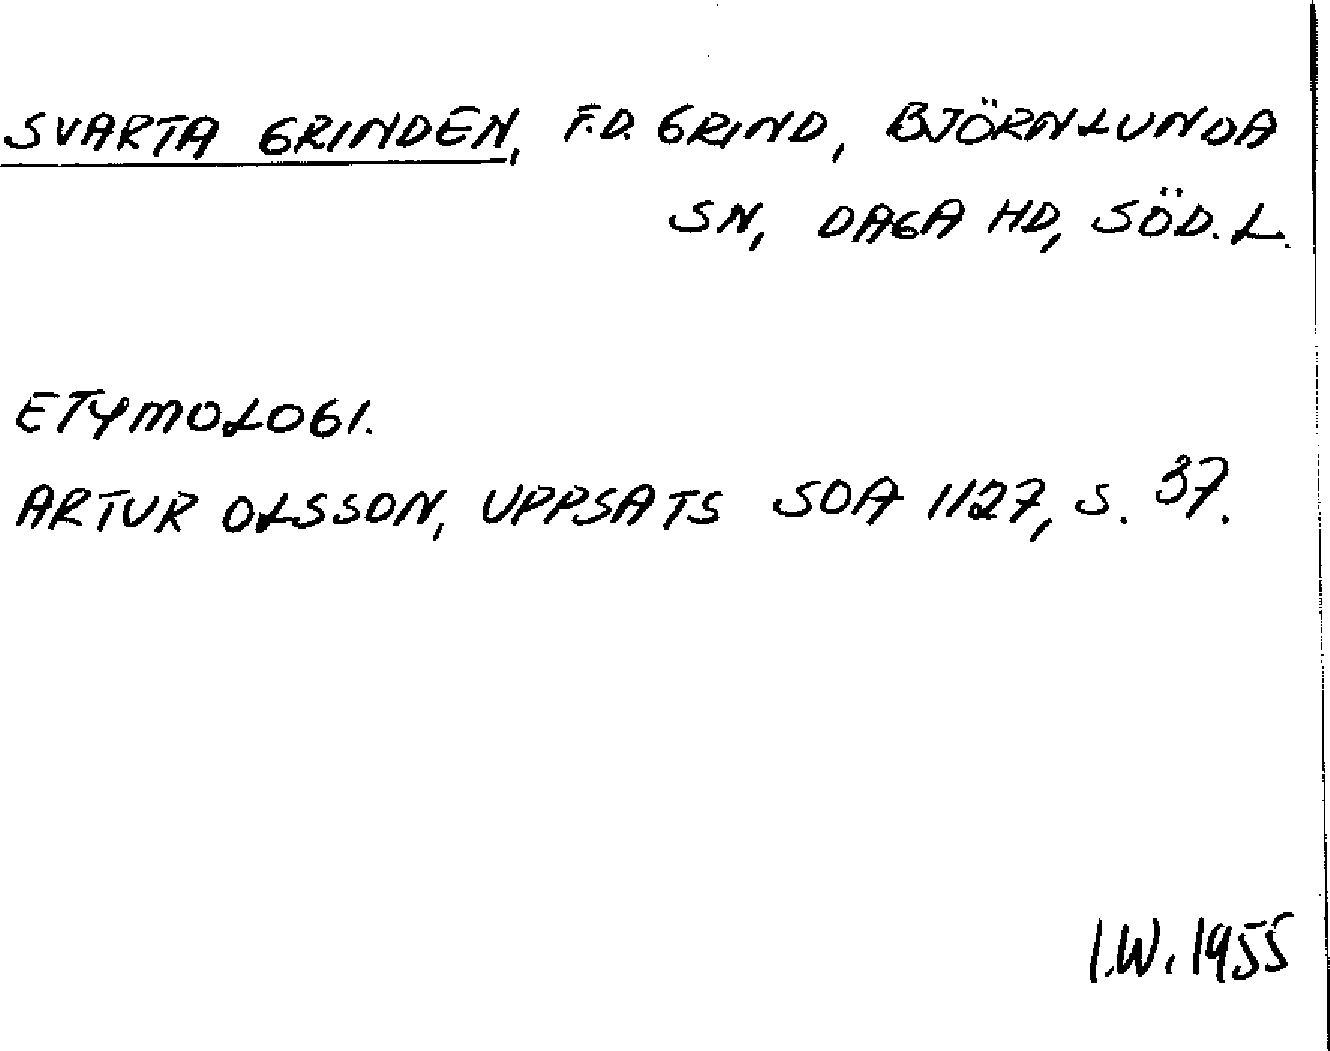 SVARTA GRINDEN, F.D. GRIND, BJÖRNLUNDA
SN, DAGA HD, SÖD. L.
ETYMOLOGI.
ARTUR OLSSON, UPPSATS SOA 1127, S. 37.
I.W. 1955